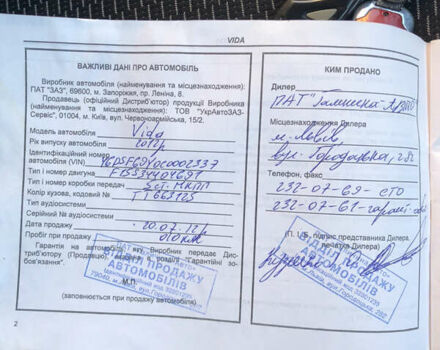 VIDA
ВАЖЛИВІ ДАНІ ПРО АВТОМОБІЛЬ
Виробник автомобіля (найменування та місцезнаходження):
ПАТ "ЗАЗ", 69600, м. Запоріжжя, пр. Леніна, 8.
Продавець (офіційний Дистриб'ютор) продукції Виробника
(найменування та місцезнаходження): ТОВ "УкрАвтоЗАЗ-
Сервіс", 01004, м. Київ, вул. Червоноармійська, 15/2.
Модель автомобіля Vida
Рік випуску автомобіля 2012р
Ідентифікаційний номер
автомобіля (VIN)
Тип і номер двигуна
Тип і номер коробки передач 5ст. МКПП
Колір кузова, кодовий №
Тип аудіосистеми
Серійний № аудіосистеми
Дата продажу 20.07.12р
Пробіг при продажу
Гарантія на автомобіль, яку Виробник передає Дис-
триб'ютору (Продавцю), в розділі "Гарантійні зо-
бов'язання".
М.П.
(заповнюється при продажу автомобіля)
ВІДДІЛ ПРОДАЖУ
АВТОМОБІЛІВ
2
КИМ ПРОДАНО
Дилер
ПАТ "Галичина-Авто"
Місцезнаходження Дилера
м. Львів,
вул. Городоцька, 282
Телефони, факс
232-07-69 - сто
232-07-61 -
(П. І. Б., підпис представника Дилера,
печатка Дилера)
ВІДДІЛ ПРОДАЖУ
АВТОМОБІЛІВ